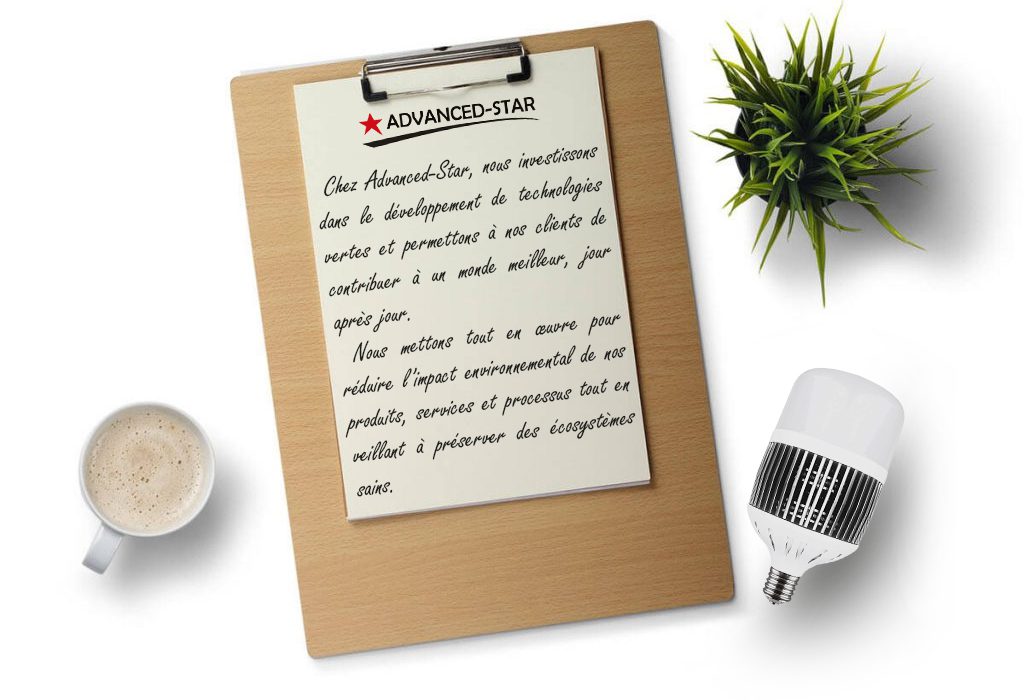 ADVANCED-STAR
Chez Advanced-Star, nous investissons
dans le développement de technologies
vertes et permettons à nos clients de
contribuer à un monde meilleur, jour
après jour.
Nous mettons tout en œuvre pour
réduire l'impact environnemental de nos
produits, services et processus tout en
veillant à préserver des écosystèmes
sains.